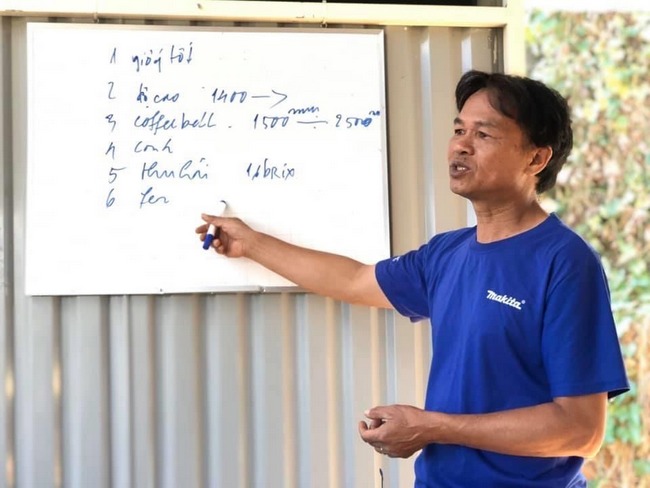 1 giống tốt
2 độ cao 1400 →
3 coffee belt. 1500mm ÷ 2500
4 canh
5 thu hái brix
6
makita